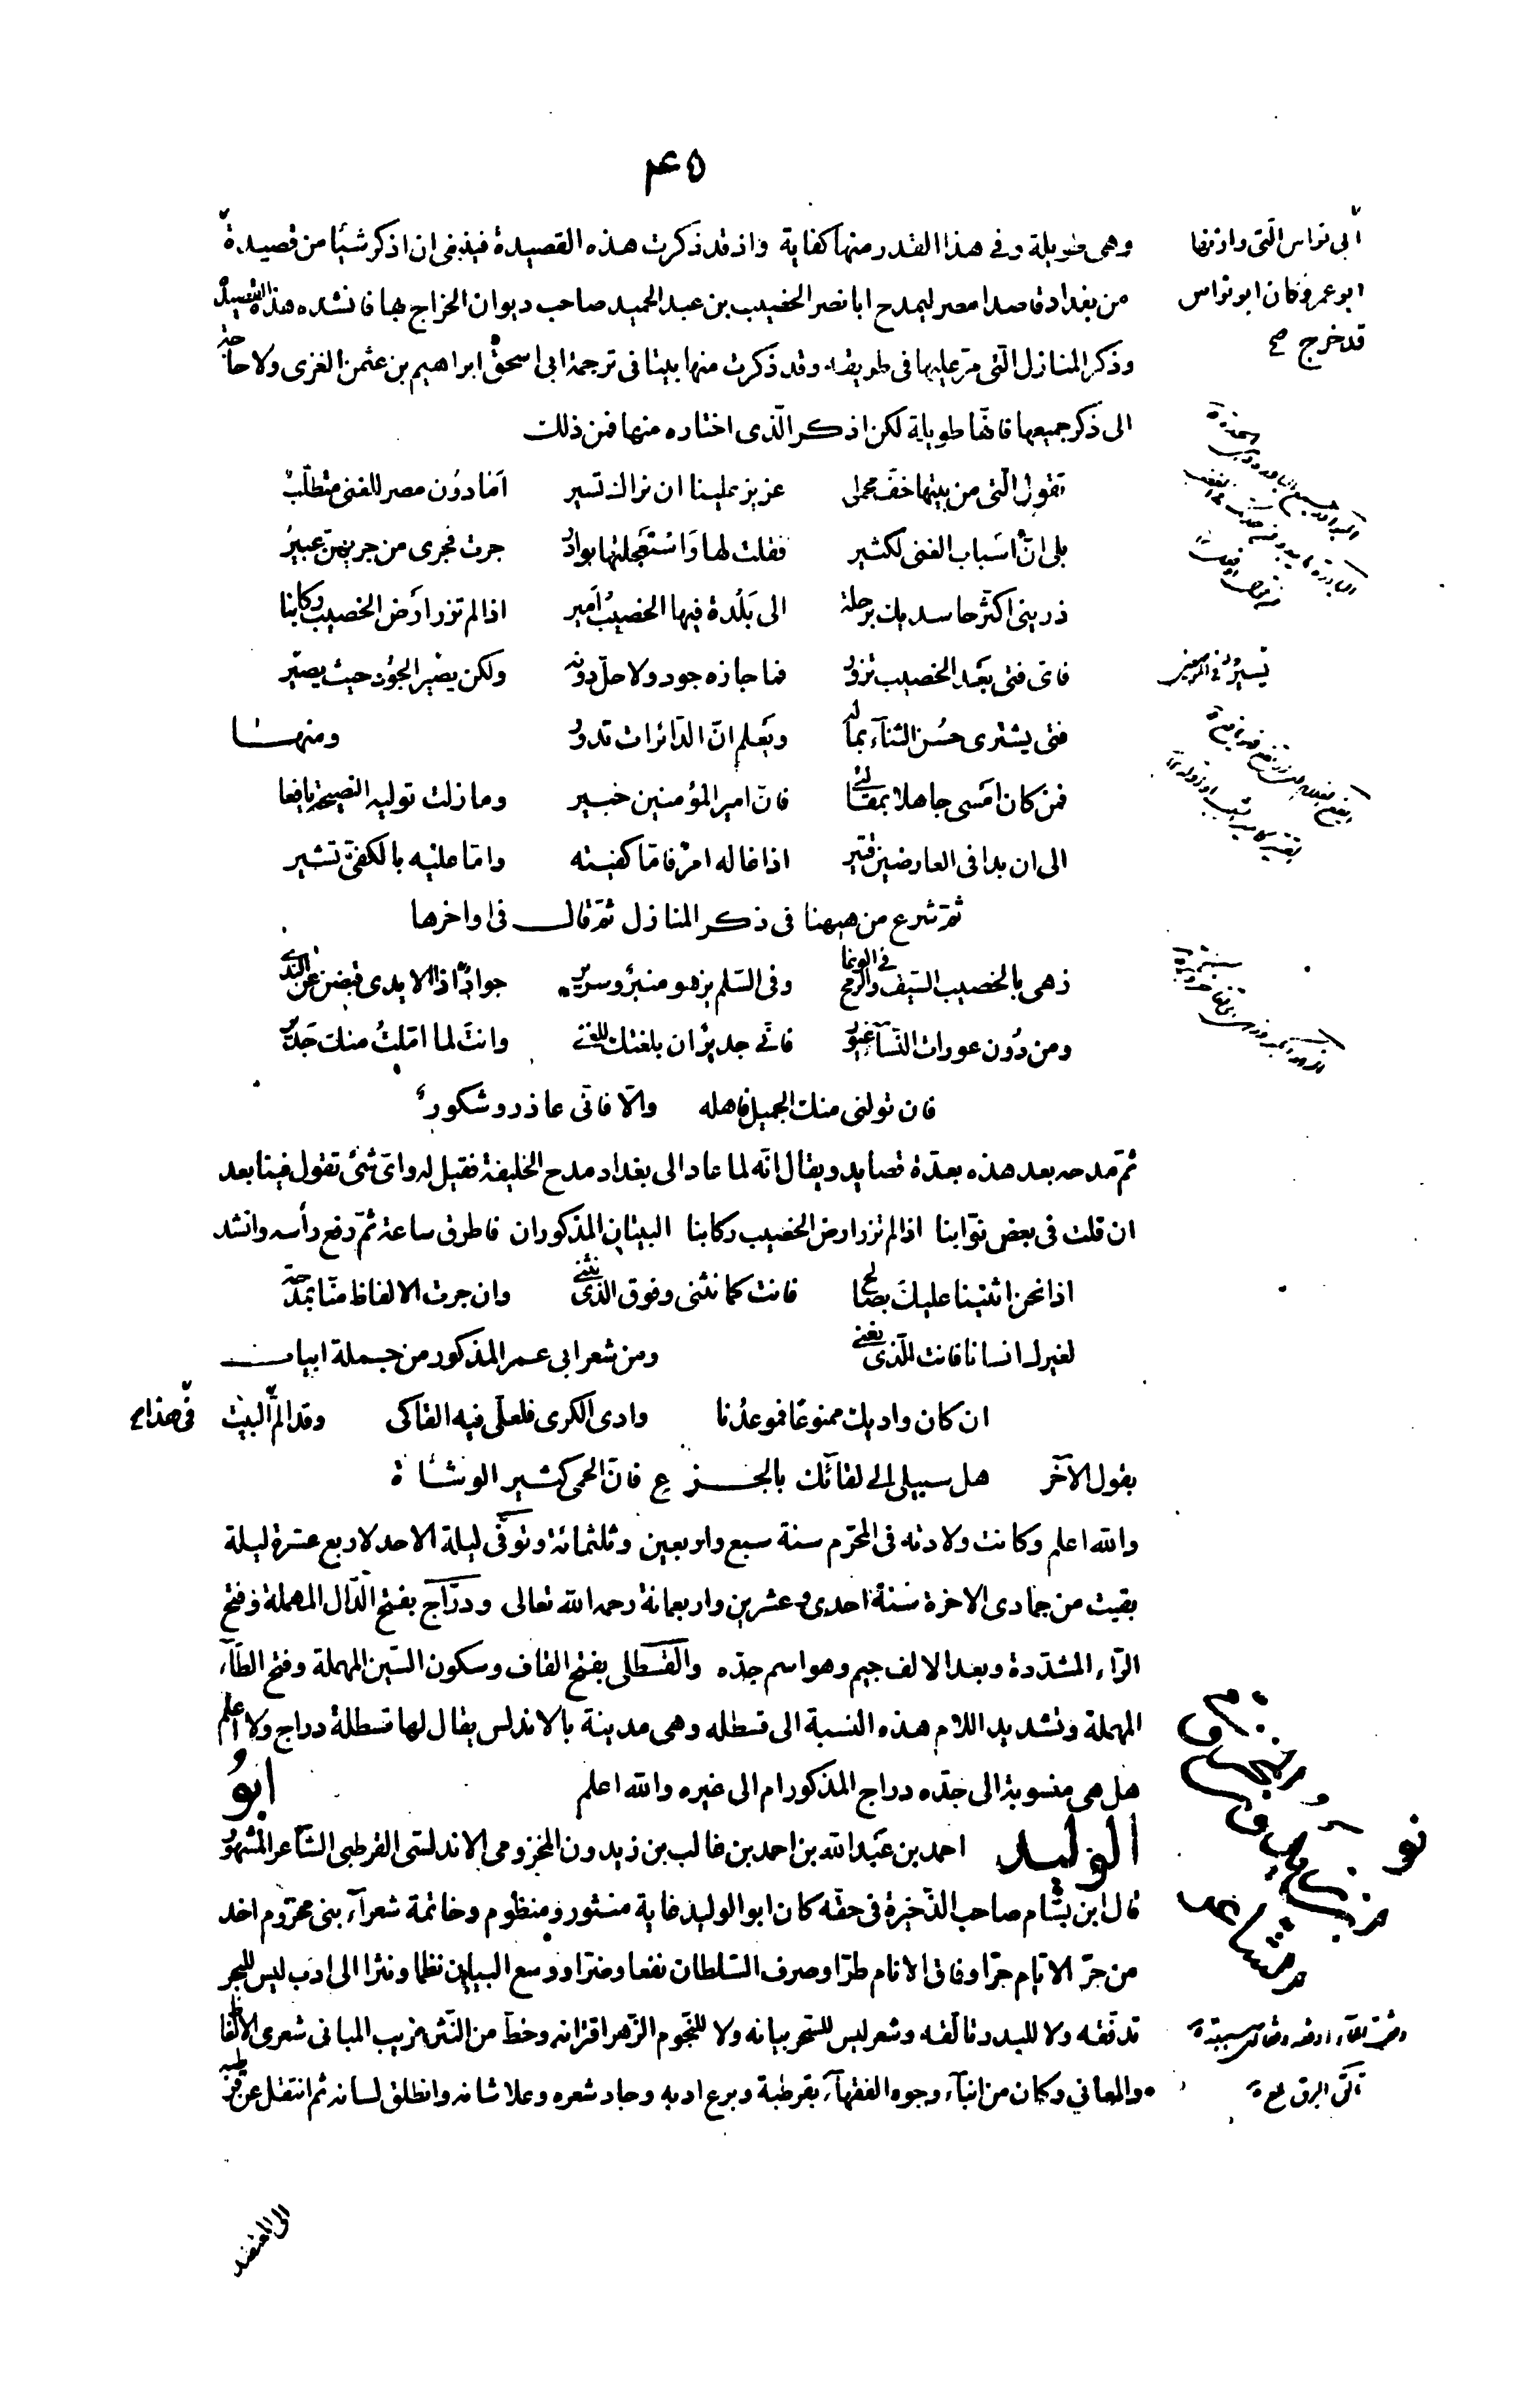 ٤٥
وهى طويلة وفى هذا القدر منها كفاية واذ قد ذكرت هذه القصيدة فينبغى ان اذكر شيئا من قصيدة
ابى نواس التى وازنها
ابو عمرو كان ابو نواس
قد خرج صح
من بغداد قاصدا مصر ليمدح ابا نصر الخصيب بن عبد الحميد صاحب ديوان الخراج بها فانشده هذه القصيدة
وذكر المنازل التى مر عليها فى طريقه وقد ذكرت منها بيتا فى ترجمة ابى اسحق ابراهيم بن عثمن الغزى ولا حاجة
الى ذكر جميعها فانها طويلة لكن اذكر الذى اختاره منها فمن ذلك
تقول التى من بيتها خف محملى عزيز علينا ان نراك تسير اما دون مصر للغنى متطلب
بلى ان اسباب الغنى لكثير فقلت لها واستعجلتها بوادر جرت فجرى من جريهن عبير
ذرينى اكثر حاسديك برحلة الى بلدة فيها الخصيب امير اذا لم تزر ارض الخصيب ركابنا
فاى فتى بعد الخصيب تزور فما جازه جود ولا حل دونه ولكن يصير الجود حيث يصير
فتى يشترى حسن الثناء بماله ويعلم ان الدائرات تدور ومنها
فمن كان امسى جاهلا بمقالتى فان امير المؤمنين خبير وما زلت توليه النصيحة يافعا
الى ان بدا فى العارضين قتير اذا غاله امر فاما كفيته واما عليه بالكفى تشير
ثم شرع من ههنا فى ذكر المنازل ثم قال فى اواخرها
زهى بالخصيب السيف والرمح فى الوغا وفى السلم يزهو منبر وسرير جواد اذا الايدى قبضن عن الندى
ومن دون عورات النساء غيور فانى جدير ان بلغتك للغنى وانت لما املت منك جدير
فان تولنى منك الجميل فاهله والا فانى عاذر وشكور
ثم مدحه بعد هذه بعدة قصايد ويقال انه لما عاد الى بغداد مدح الخليفة فقيل له واى شئ تقول فينا بعد
ان قلت فى بعض نوابنا اذا لم تزر ارض الخصيب ركابنا البيتان المذكوران فاطرق ساعة ثم رفع رأسه وانشد
اذا نحن اثنينا عليك بصالح فانت كما نثنى وفوق الذى نثنى وان جرت الالفاظ منا بمدحة
لغيرك انسانا فانت الذى نعنى ومن شعر ابى عمر المذكور من جملة ابيات
ان كان واديك ممنوعا فموعدنا وادى الكرى فلعلى فيه القاكى وقد الم البيت فى هذا صح
بقول الآخر هل سبيل الى لقائك بالجزع فان الحمى كثير الوشاة
والله اعلم وكانت ولادته فى المحرم سنة سبع واربعين وثلثمائة وتوفى ليلة الاحد لاربع عشرة ليلة
بقيت من جمادى الاخرة سنة احدى وعشرين واربعمائة رحمه الله تعالى ودراج بفتح الدال المهملة وفتح
الراء المشددة وبعد الالف جيم وهو اسم جده والقسطلى بفتح القاف وسكون السين المهملة وفتح الطاء
المهملة وتشديد اللام هذه النسبة الى قسطله وهى مدينة بالاندلس يقال لها قسطلة دراج ولا اعلم
هل هى منسوبة الى جده دراج المذكور ام الى غيره والله اعلم ابو
الوليد احمد بن عبد الله بن احمد بن غالب بن زيدون المخزومى الاندلسى القرطبى الشاعر المشهور
قال ابن بسام صاحب الذخيرة فى حقه كان ابو الوليد غاية منثور ومنظوم وخاتمة شعرآء بنى مخزوم اخذ
من حر الايام حرا وفاق الانام طرا وصرف السلطان نفعا وضرا ووسع البيان نظما ونثرا الى ادب ليس للبحر
تدفقه ولا للبدر تالقه وشعر ليس للسحر بيانه ولا للنجوم الزهر اقترانه وحظ من النثر غريب المبانى شعرى الالفاظ
والمعاني وكان من ابناء وجوه الفقهاء بقرطبة وبرع ادبه وجاد شعره وعلا شانه وانطلق لسانه ثم انتقل عن قرطبة
تالق البرق لمع
الى المعتضد